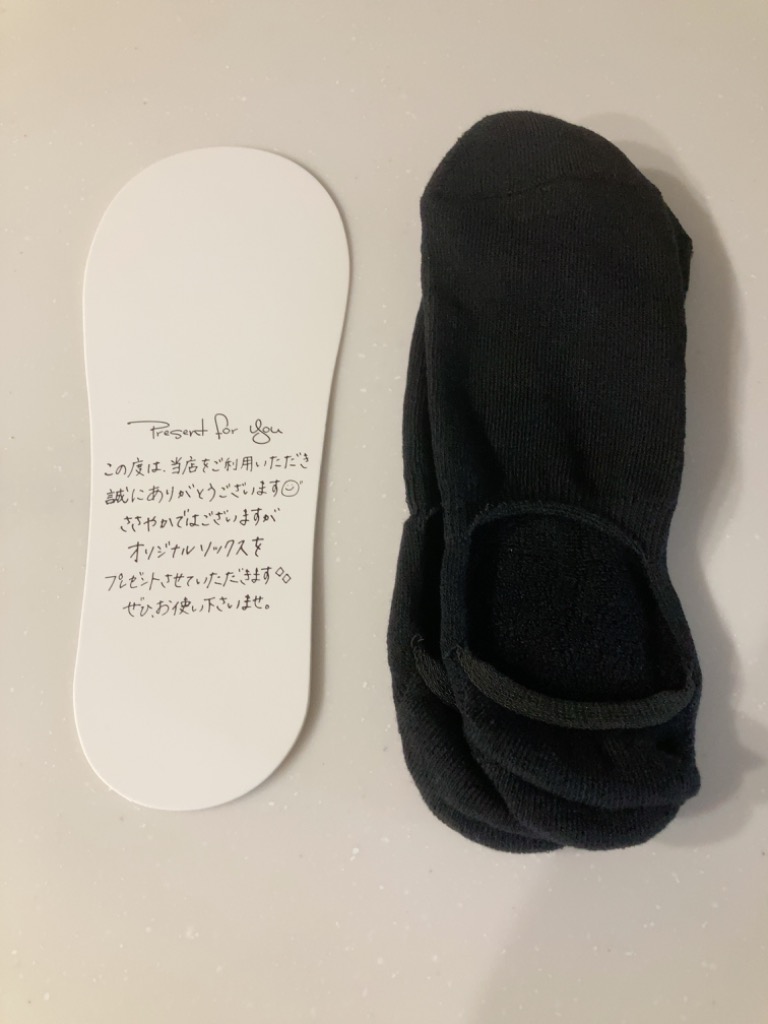 Present for you
この度は、当店をご利用いただき
誠にありがとうございます
ささやかではございますが
オリジナルソックスを
プレゼントさせていただきます
ぜひ、お使い下さいませ。